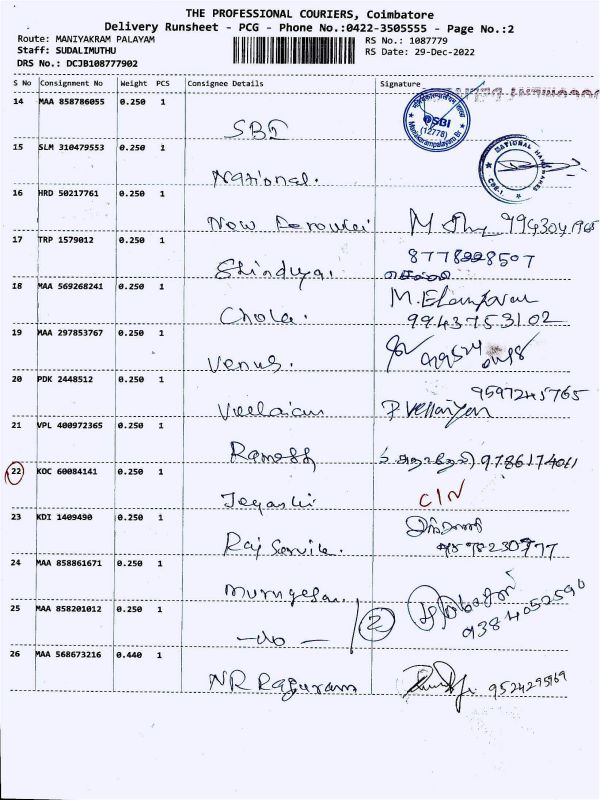 THE PROFESSIONAL COURIERS, Coimbatore
Delivery Runsheet - PCG - Phone No.:0422-3505555 - Page No.:2
Route: MANIYAKRAM PALAYAM RS No.: 1087779
Staff: SUDALIMUTHU RS Date: 29-Dec-2022
DRS No.: DCJB108777902
S No Consignment No Weight PCS Consignee Details Signature
14 MAA 858786055 0.250 1 SBI
SBI
(12778)
15 SLM 310479553 0.250 1 National.
NATIONAL
CBE-1
16 HRD 50217761 0.250 1 New
17 TRP 1579012 0.250 1
18 MAA 569268241 0.250 1 Chola.
9943753102
19 MAA 297853767 0.250 1 Venus.
20 PDK 2448512 0.250 1 P. Vellaiyan
9597245765
21 VPL 400972365 0.250 1 Ramesh 9786174011
22 KOC 60084141 0.250 1 C/N
23 KDI 1409490 0.250 1 Raj Service.
24 MAA 858861671 0.250 1 Murugesan.
9384052590
25 MAA 858201012 0.250 1 -do- 2
26 MAA 568673216 0.440 1 NR Raguram 9524295969